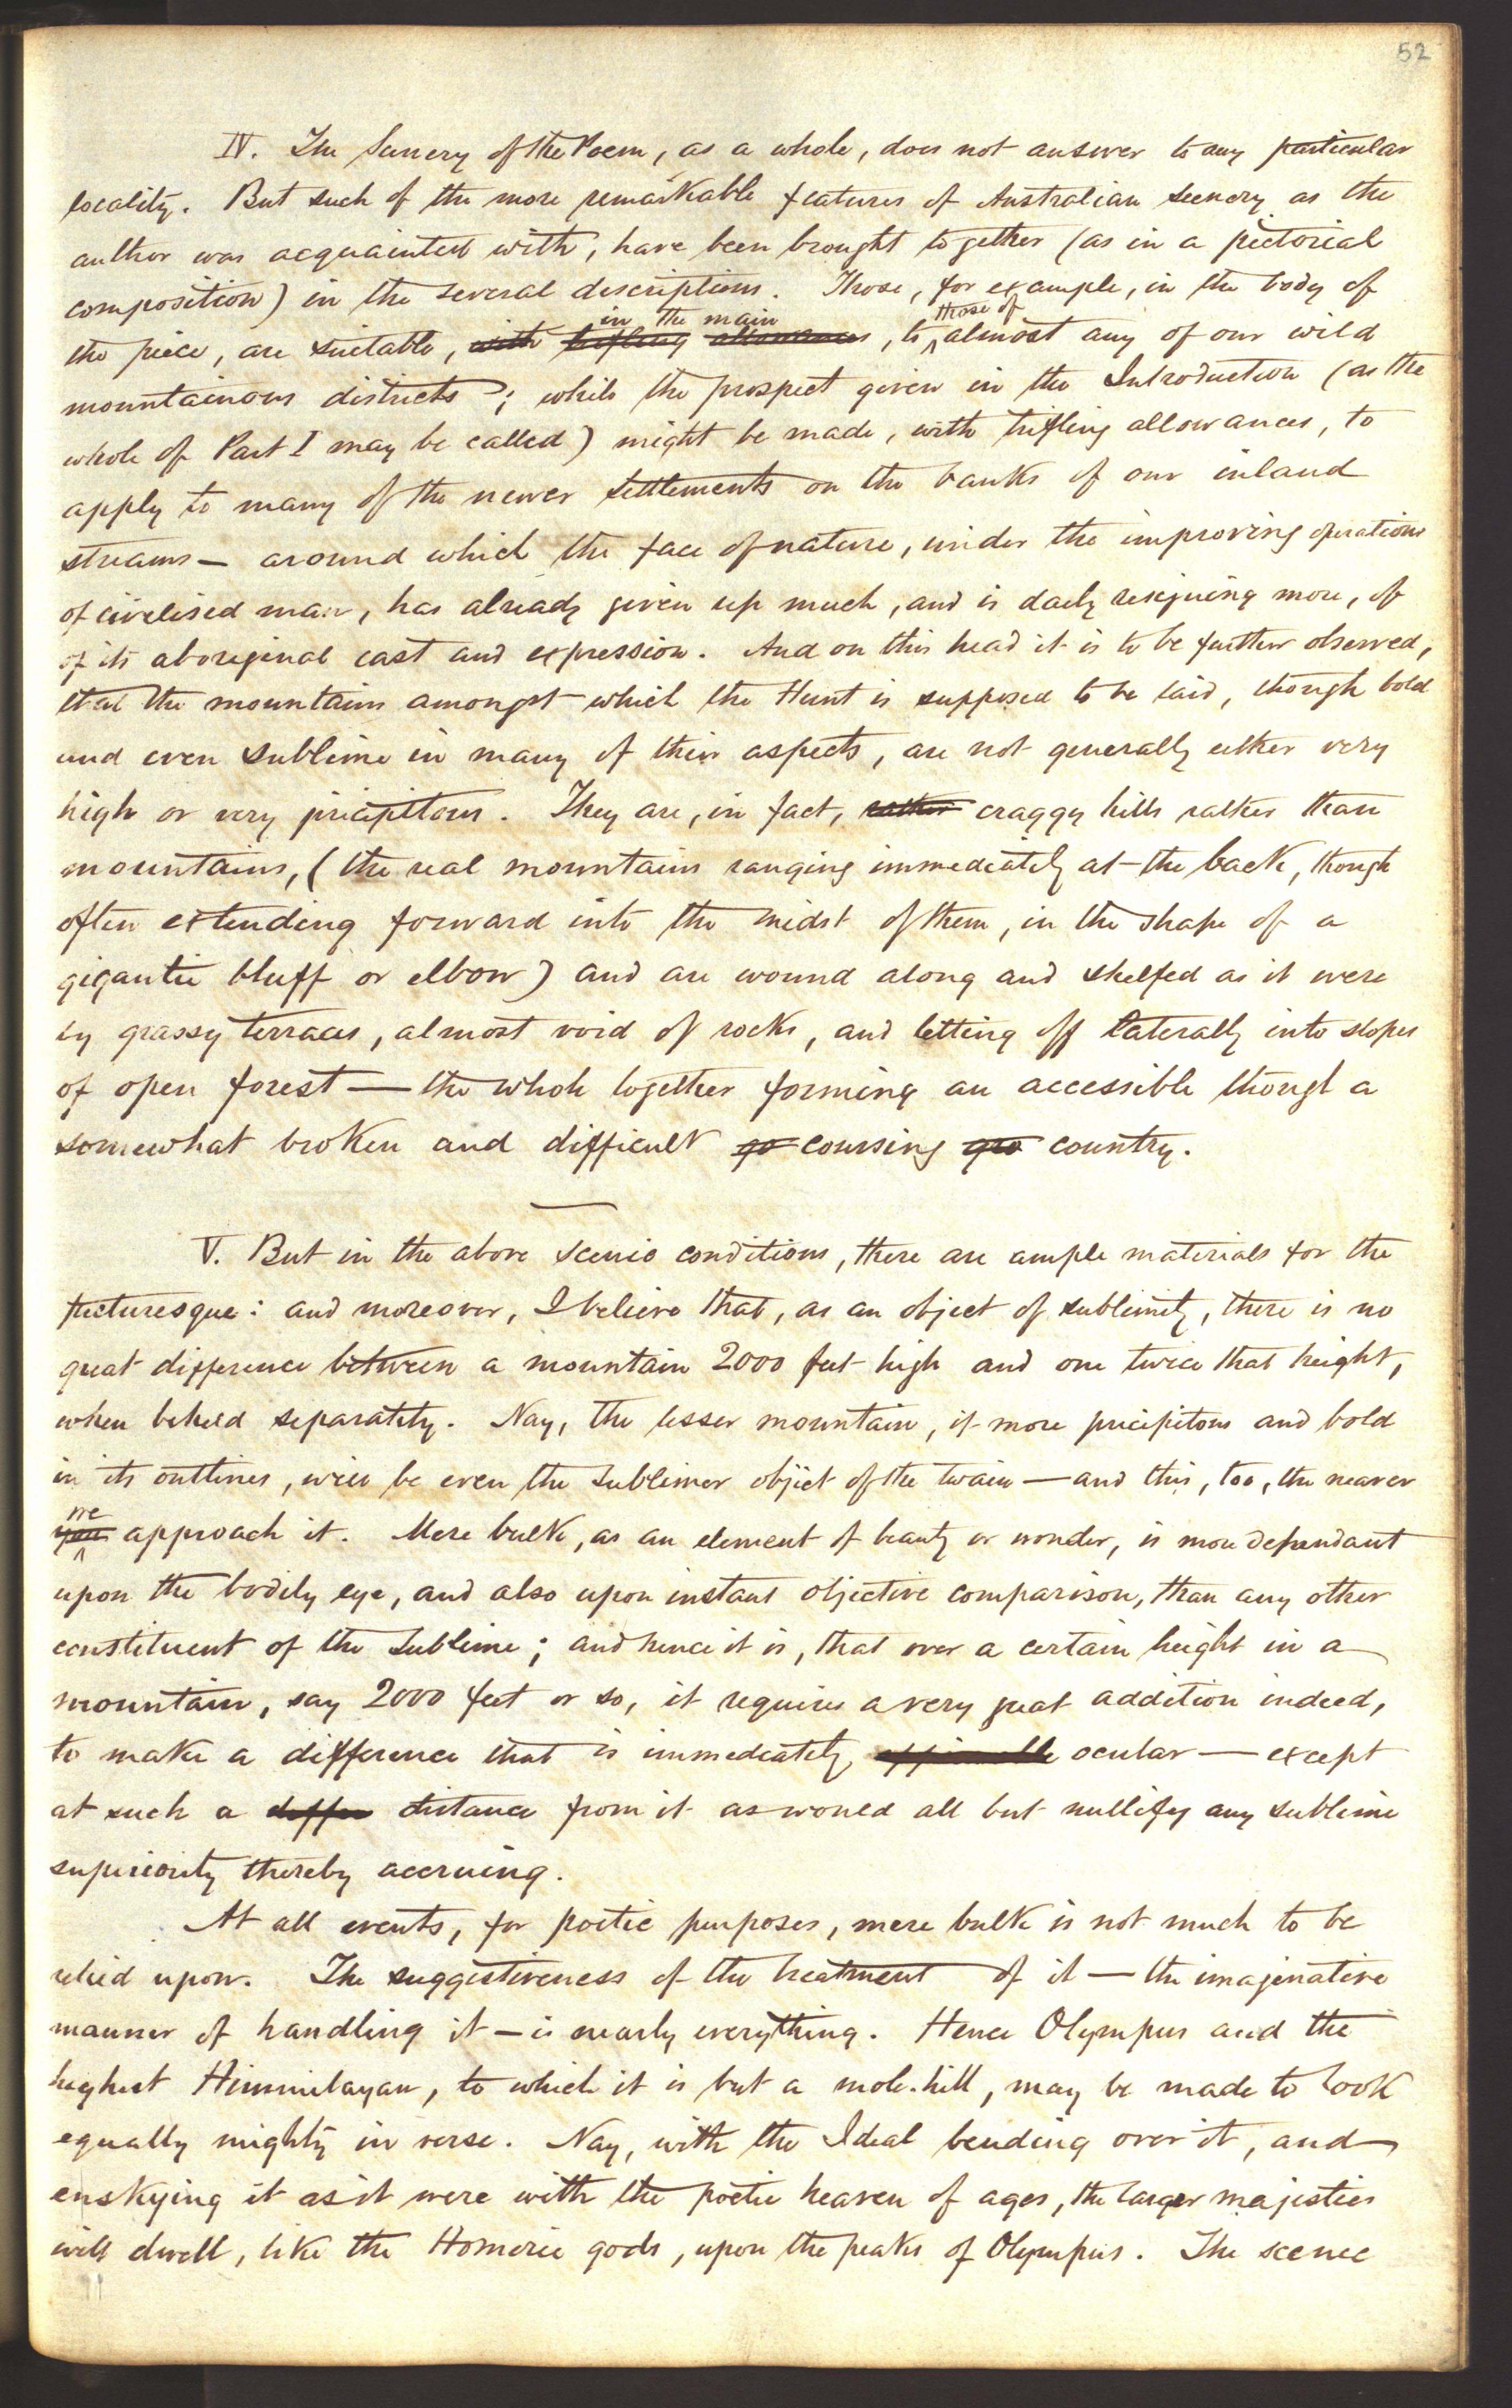 52
IV. The Scenery of the Poem, as a whole, does not answer to any particular
locality. But such of the more remarkable features of Australian scenery as the
author was acquainted with, have been brought together (as in a pictorial
composition) in the several descriptions. Those, for example, in the body of
in the main those of
the piece, are suitable, with trifling allowances, to almost any of our wild
mountainous districts; while the prospect given in the Introduction (as the
whole of Part I may be called) might be made, with trifling allowances, to
apply to many of the newer settlements on the banks of our inland
streams — around which the face of nature, under the improving operations
of civilised man, has already given up much, and is daily resigning more, of
of its aboriginal cast and expression. And on this head it is to be further observed,
that the mountains amongst which the Hunt is supposed to be laid, though bold
and even sublime in many of their aspects, are not generally either very
high or very precipitous. They are, in fact, rather craggy hills rather than
mountains, (the real mountains ranging immediately at the back, though
often extending forward into the midst of them, in the shape of a
gigantic bluff or elbow) and are wound along and shelfed as it were
by grassy terraces, almost void of rocks, and letting off laterally into slopes
of open forest — the whole together forming an accessible though a
somewhat broken and difficult go coursing gro country.
V. But in the above scenic conditions, there are ample materials for the
picturesque: and moreover, I believe that, as an object of sublimity, there is no
great difference between a mountain 2000 feet high and one twice that height,
when beheld separately. Nay, the lesser mountain, if more precipitous and bold
in its outlines, will be even the sublimer object of the twain — and this, too, the nearer
we
you approach it. Mere bulk, as an element of beauty or wonder, is more dependant
upon the bodily eye, and also upon instant objective comparison, than any other
constituent of the Sublime; and hence it is, that over a certain height in a
mountain, say 2000 feet or so, it requires a very great addition indeed,
to make a difference that is immediately ocular — except
at such a differ distance from it as would all but nullify any sublime
superiority thereby accruing.
At all events, for poetic purposes, mere bulk is not much to be
relied upon. The suggestiveness of the treatment of it — the imaginative
manner of handling it — is nearly everything. Hence Olympus and the
highest Himmilayan, to which it is but a mole-hill, may be made to look
equally mighty in verse. Nay, with the Ideal bending over it, and
enskying it as it were with the poetic heaven of ages, the larger majesties
will dwell, like the Homeric gods, upon the peaks of Olympus. The scenic